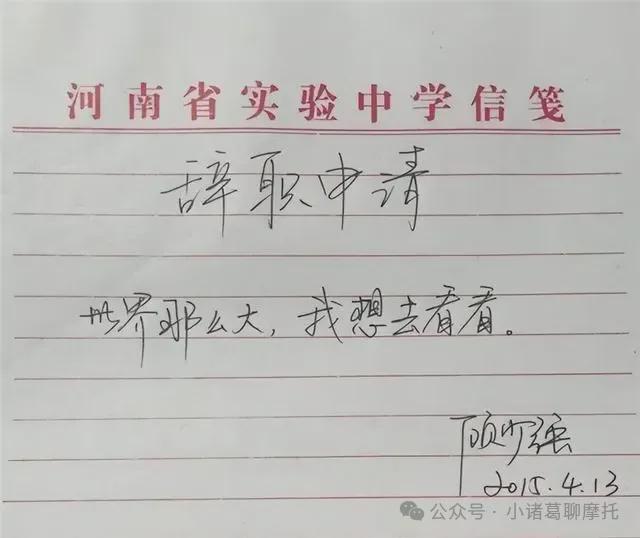 河南省实验中学信笺
辞职申请
世界那么大，我想去看看。
顾少强
2015.4.13
公众号·小诸葛聊摩托